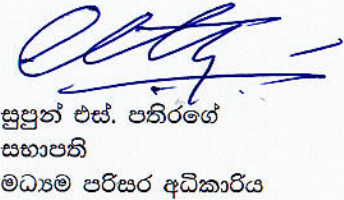 සුපුන් එස්. පතිරගේ
සභාපති
මධ්‍යම පරිසර අධිකාරිය